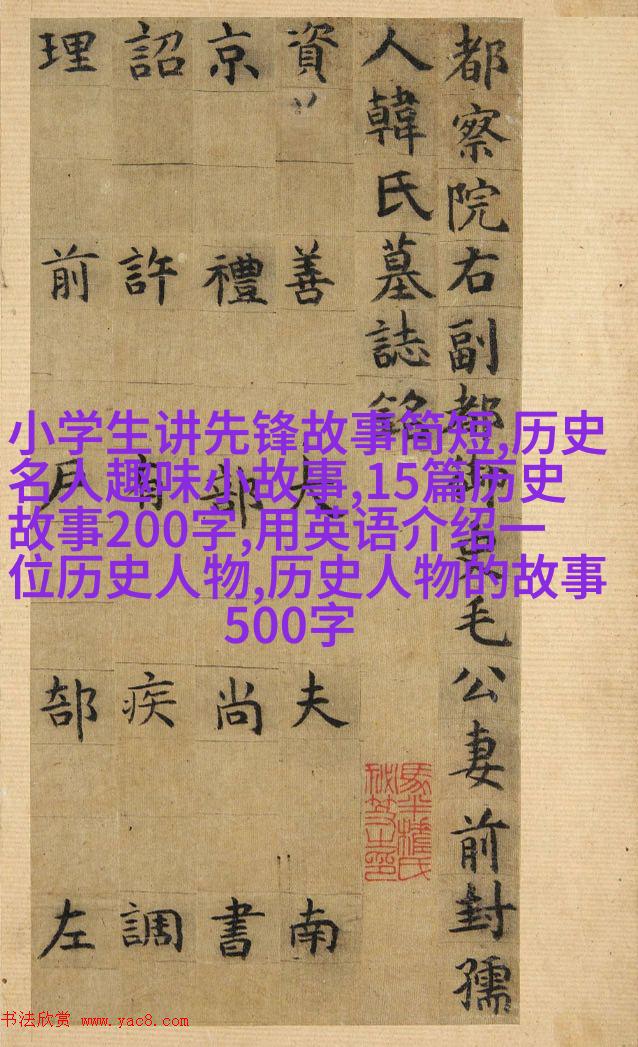 都察院右副都御史毛公妻前封孺
人韓氏墓誌銘
資善大夫南
京禮部尚書
詔許有疾調
理前戶部左
小学生讲先锋故事简短,历史
名人趣味小故事,15篇历史
故事200字,用英语介绍一
位历史人物,历史人物的故事
500字
书法欣赏 www.yac8.com